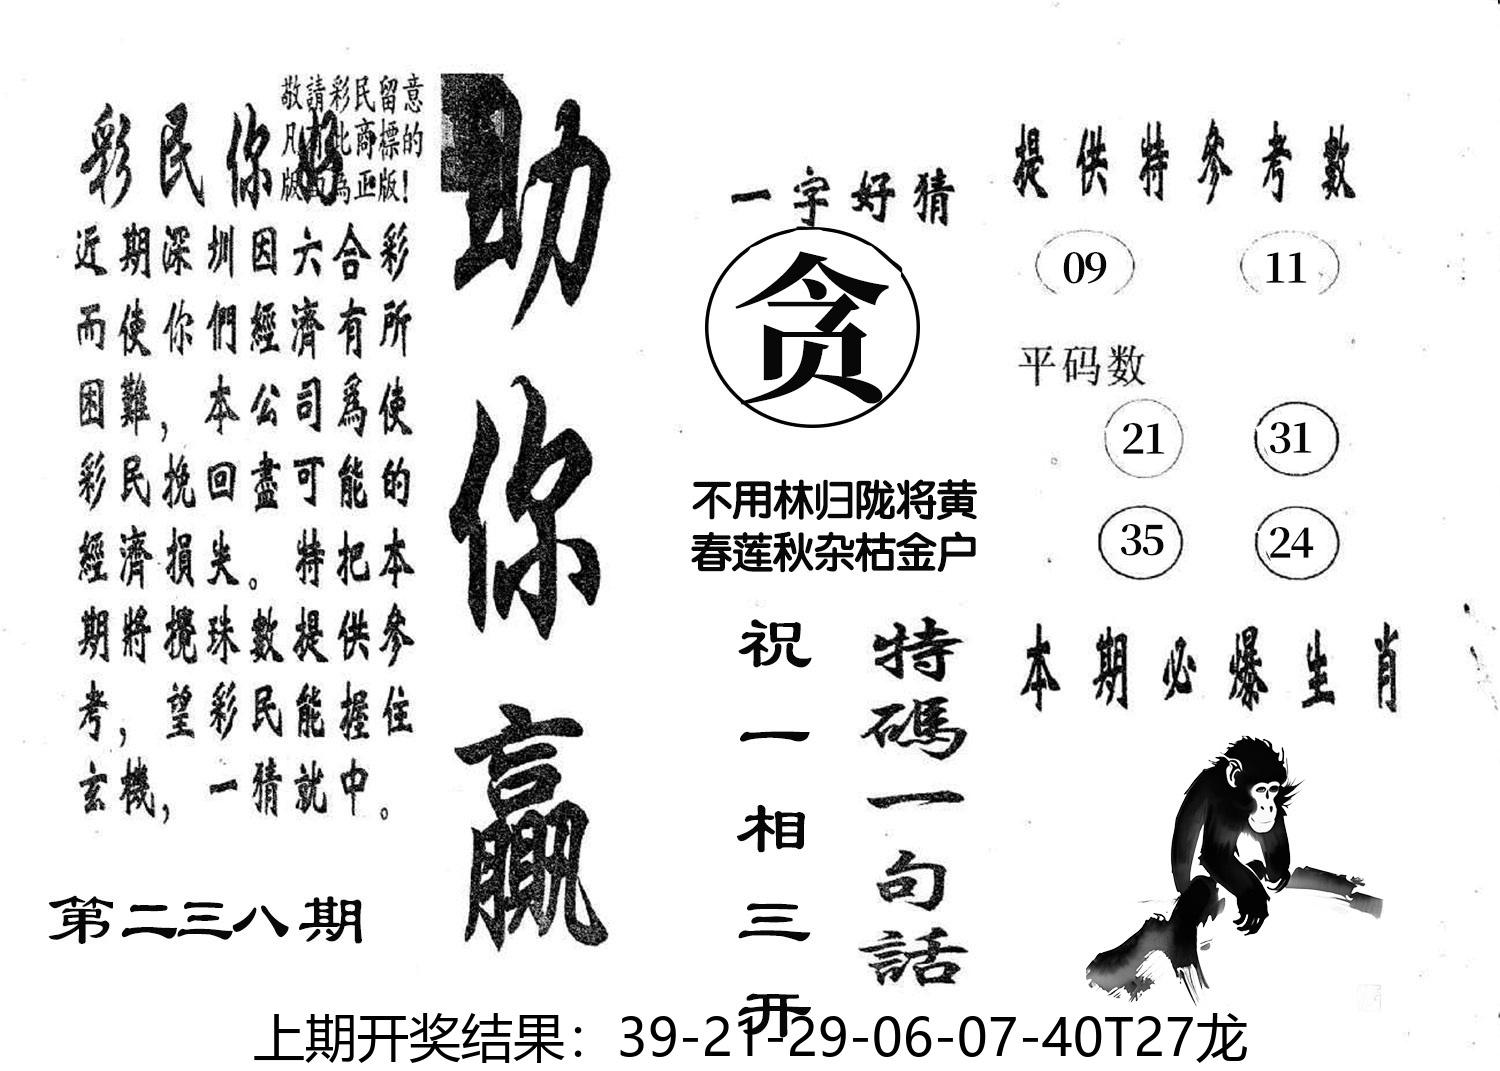 敬請彩民留意
凡有此商標的
版面為正版!
彩民你好
近期深圳因六合彩
而使你們經濟有所
困難，本公司爲使
彩民挽回盡可能的
經濟損失。特把本
期將攪珠數提供參
考，望彩民能握住
玄機，一猜就中。
第二三八期
助你贏
一字好猜
贪
不用林归陇将黄
春莲秋杂枯金户
特碼一句話
祝一相三开
提供特參考數
09 11
平码数
21 31
35 24
本期必爆生肖
上期开奖结果：39-21-29-06-07-40T27龙